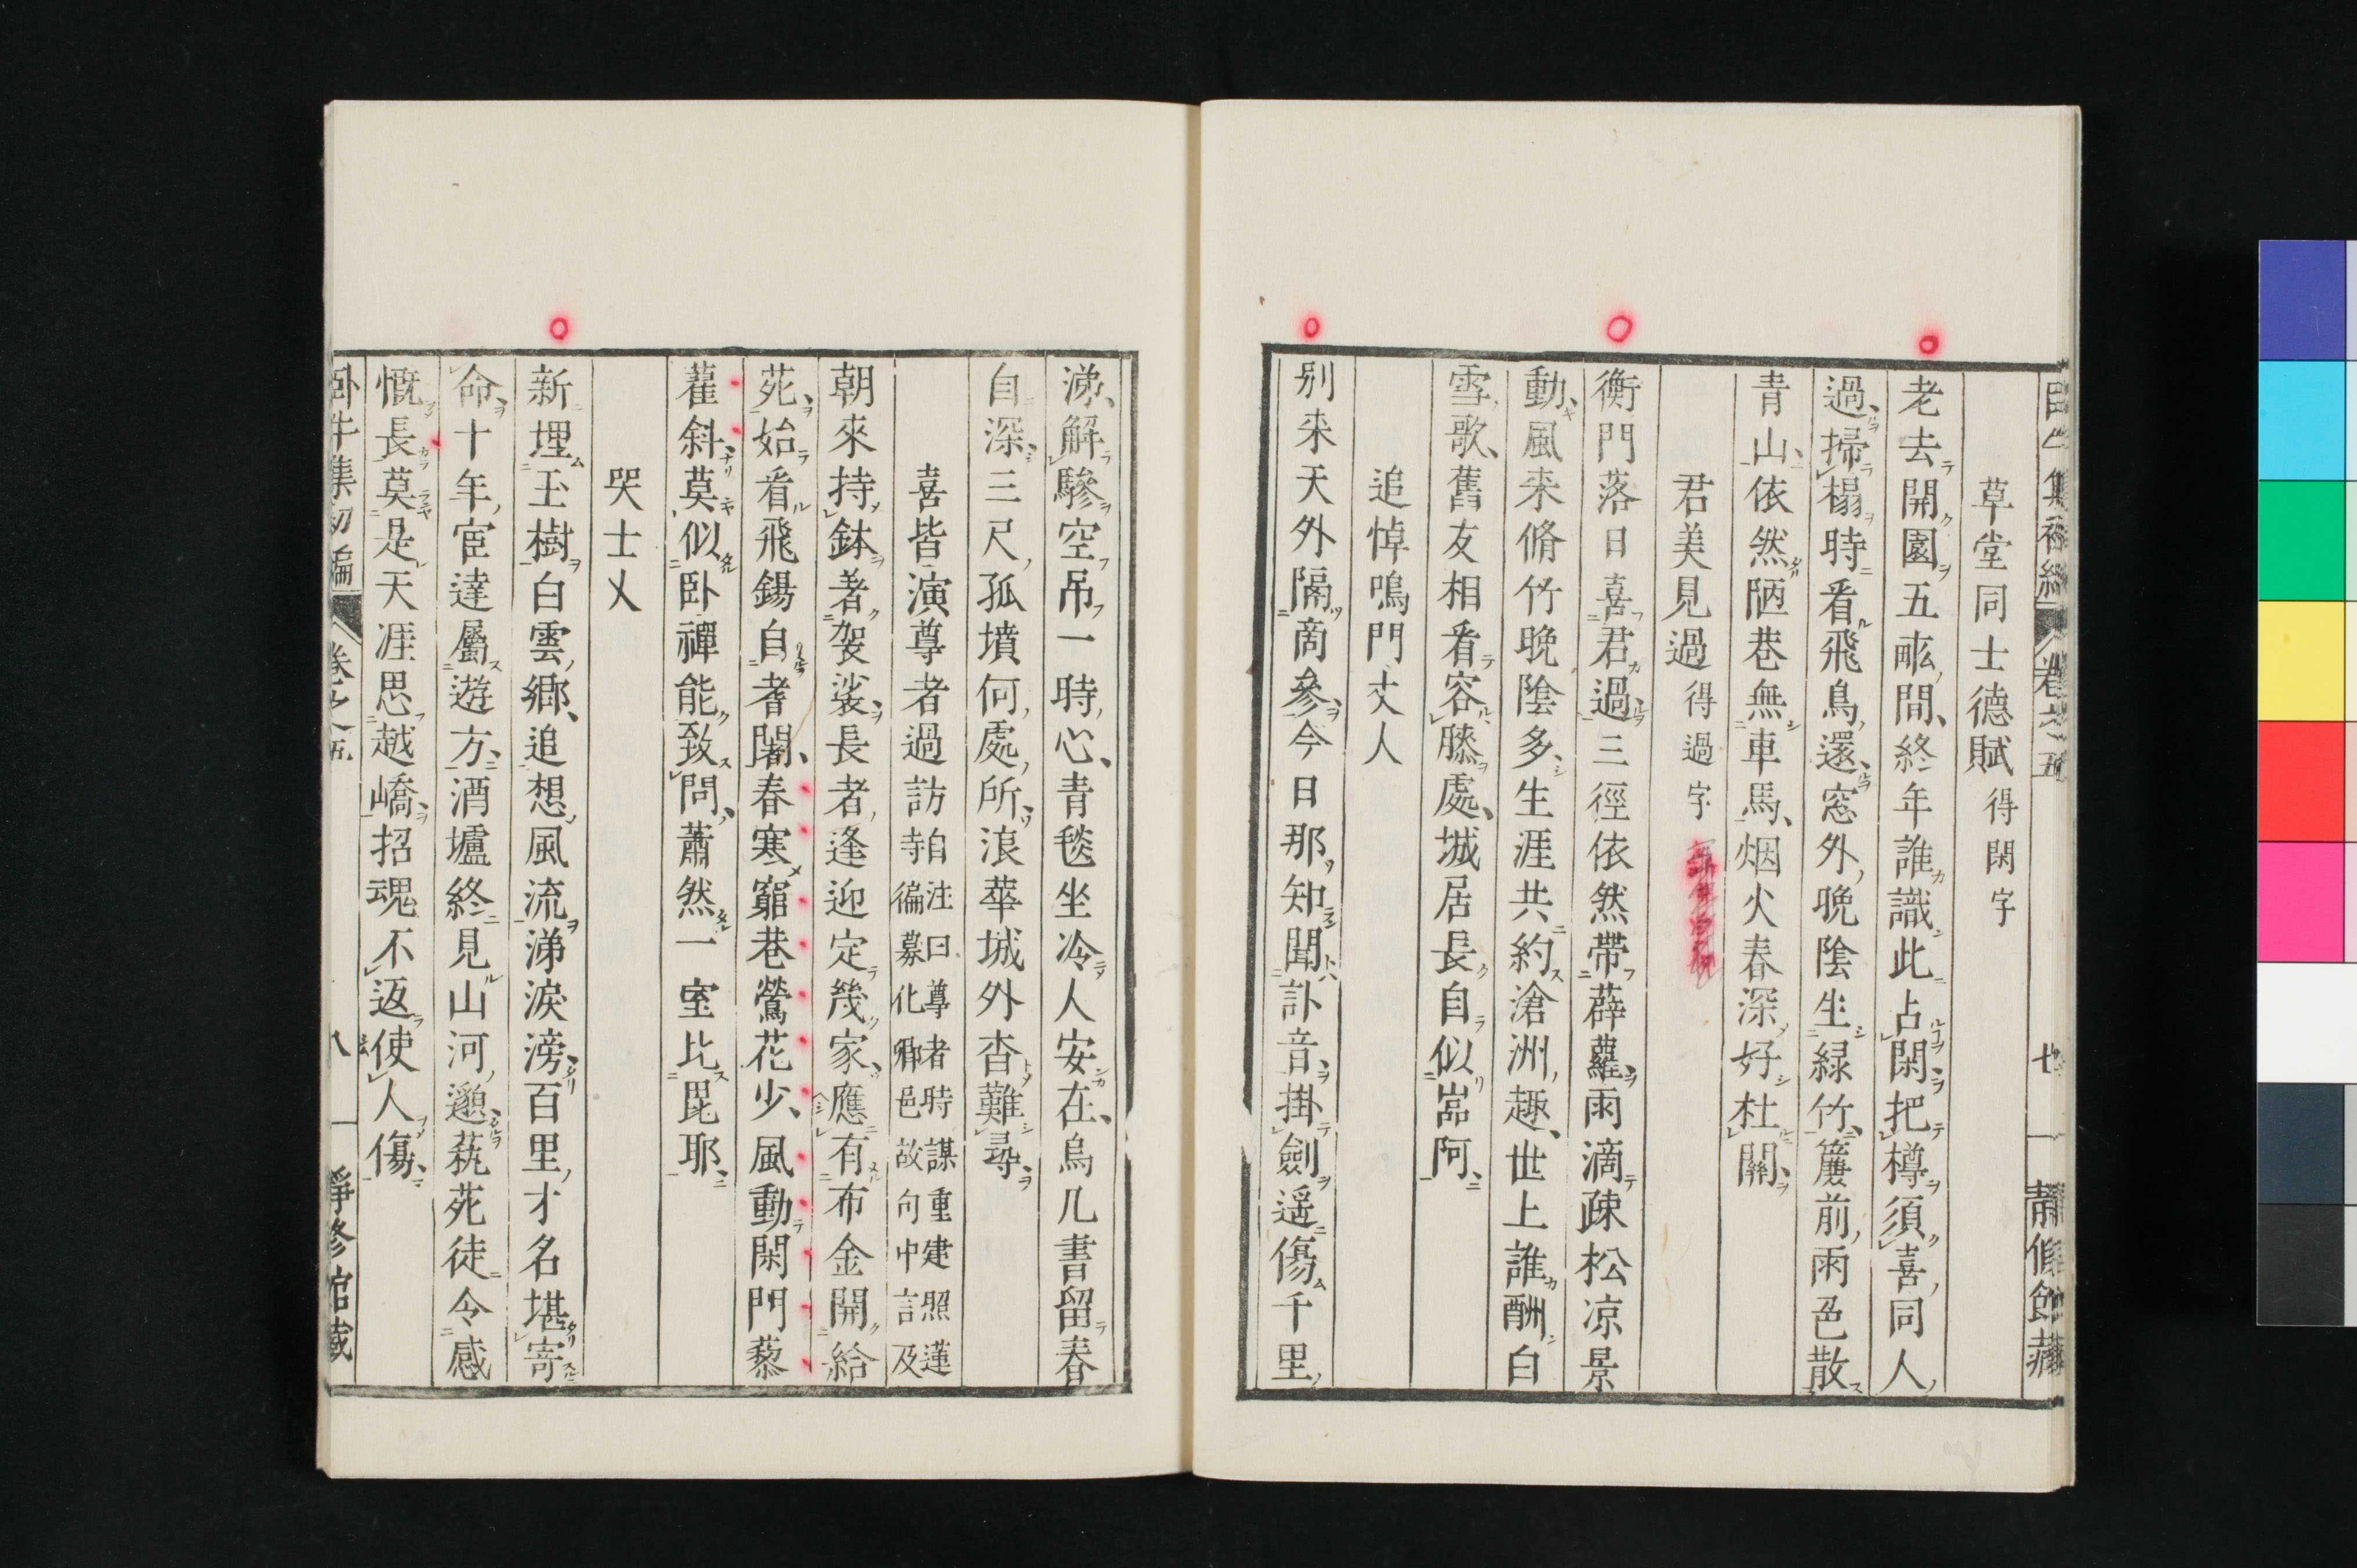 草堂同士德賦得閑字
老去開園五畝間終年誰識此占閑把樽須喜同人
過掃榻時看飛鳥還窓外晩陰生緑竹簾前雨色散
青山依然陋巷無車馬烟火春深好杜關
君美見過得過字
衡門落日喜君過三徑依然帶薜蘿雨滴疎松凉景
動風来脩竹晩陰多生涯共約滄洲趣世上誰酬白
雪歌舊友相看容膝處城居長自似嵓阿
追悼鳴門丈人
別来天外隔商參今日那知聞訃音掛劍遥傷千里
涕解驂空吊一時心青毯坐冷人安在烏几書留春
自深三尺孤墳何處所浪華城外杳難尋
喜皆演尊者過訪自注曰尊者時謀重建照蓮
寺徧募化郷邑故句中言及
朝來持鉢著袈裟長者逢迎定幾家應有布金開給
苑始看飛錫自耆闍春寒窮巷鶯花少風動閑門藜
藿斜莫似卧禪能致問蕭然一室比毘耶
哭士乂
新埋玉樹白雲郷追想風流涕淚滂百里才名堪寄
命十年宦達屬遊方酒壚終見山河邈蓺苑徒令感
慨長莫是天涯思越嶠招魂不返使人傷
卧牛集初編 卷之五 八 靜修館藏